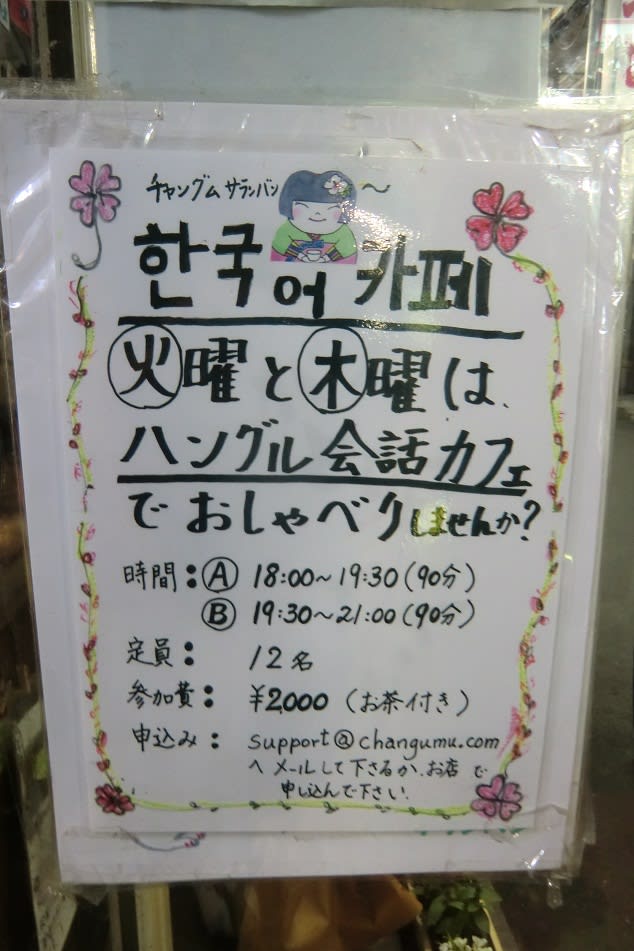 チャングム サランバン 〜
한국어 카페
火曜と木曜は、
ハングル会話カフェ
でおしゃべりしませんか?
時間：Ⓐ 18:00〜19:30(90分)
Ⓑ 19:30〜21:00(90分)
定員： 12名
参加費： ¥2,000 (お茶付き)
申込み： support@changumu.com
へメールして下さるか、お店で
申し込んで下さい.